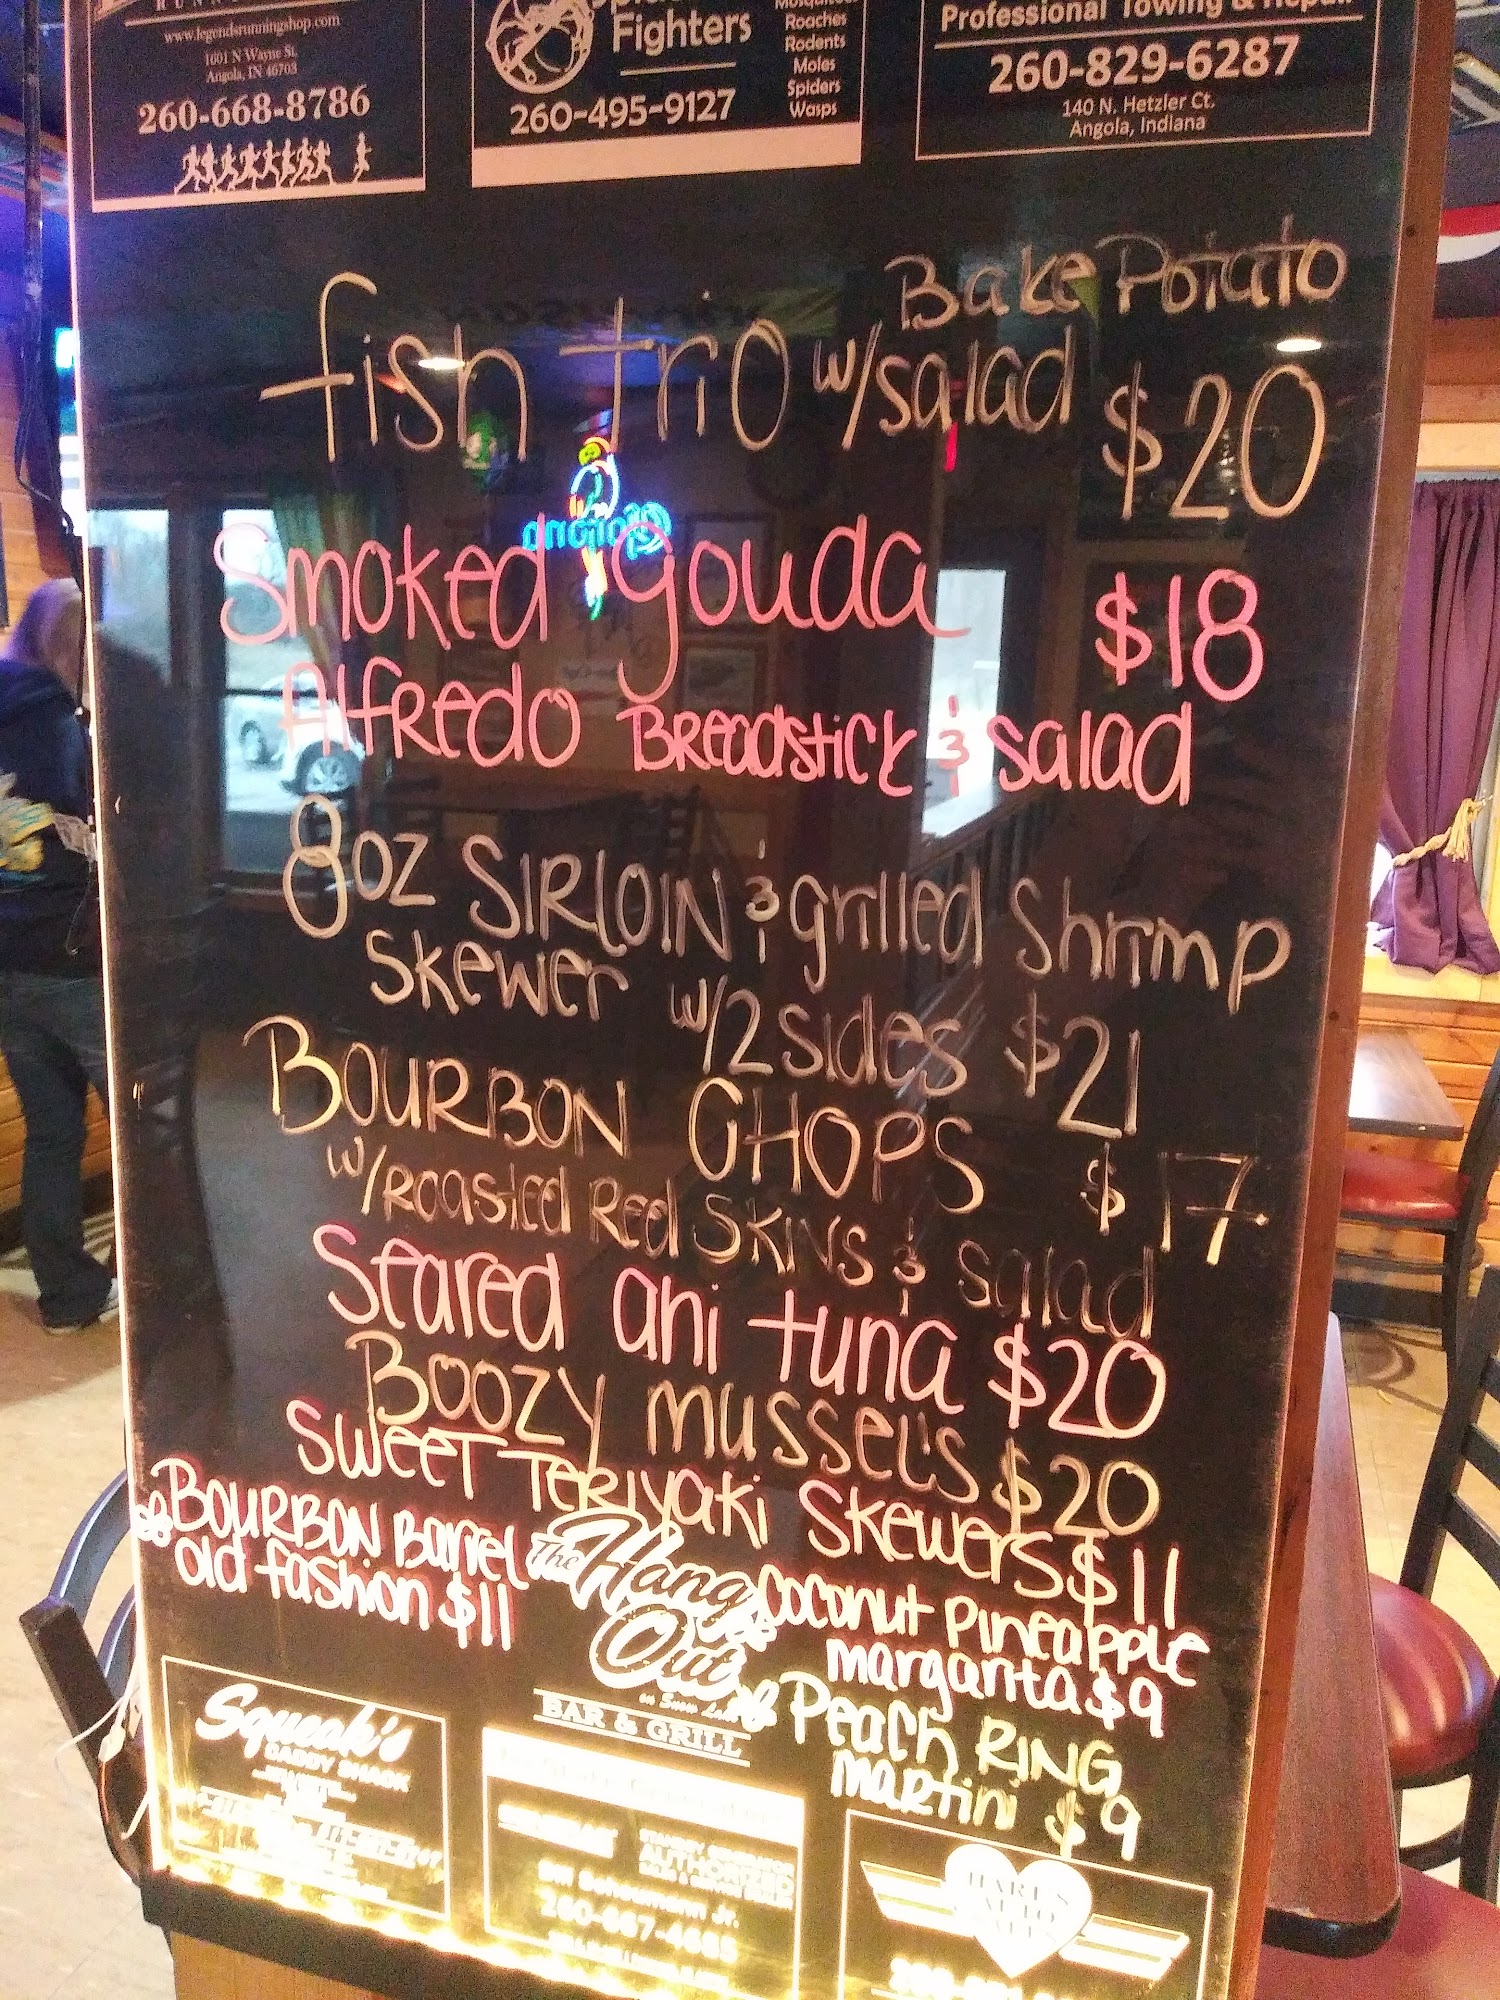 www.legendsrunningshop.com
1601 N Wayne St.
Angola, IN 46703
260-668-8786
Fighters
260-495-9127
Roaches
Rodents
Moles
Spiders
Wasps
Professional Towing & Repair
260-829-6287
140 N. Hetzler Ct.
Angola, Indiana
Bake Potato
fish trio w/salad $20
Smoked gouda $18
Alfredo Breadstick & salad
8oz SIRLOIN & grilled shrimp
skewer w/2 sides $21
BOURBON CHOPS $17
w/Roasted Red SKINS & salad
Seared ahi tuna $20
Boozy mussels $20
Sweet Teriyaki Skewers $11
Bourbon Barrel
old fashion $11
The Hang Out
on Snow Lake
BAR & GRILL
Coconut Pineapple
margarita $9
Peach RING
martini $9
Squeak's
DADDY SHACK
AUTHORIZED
Bill Schoemann Jr.
HART'S
AUTO